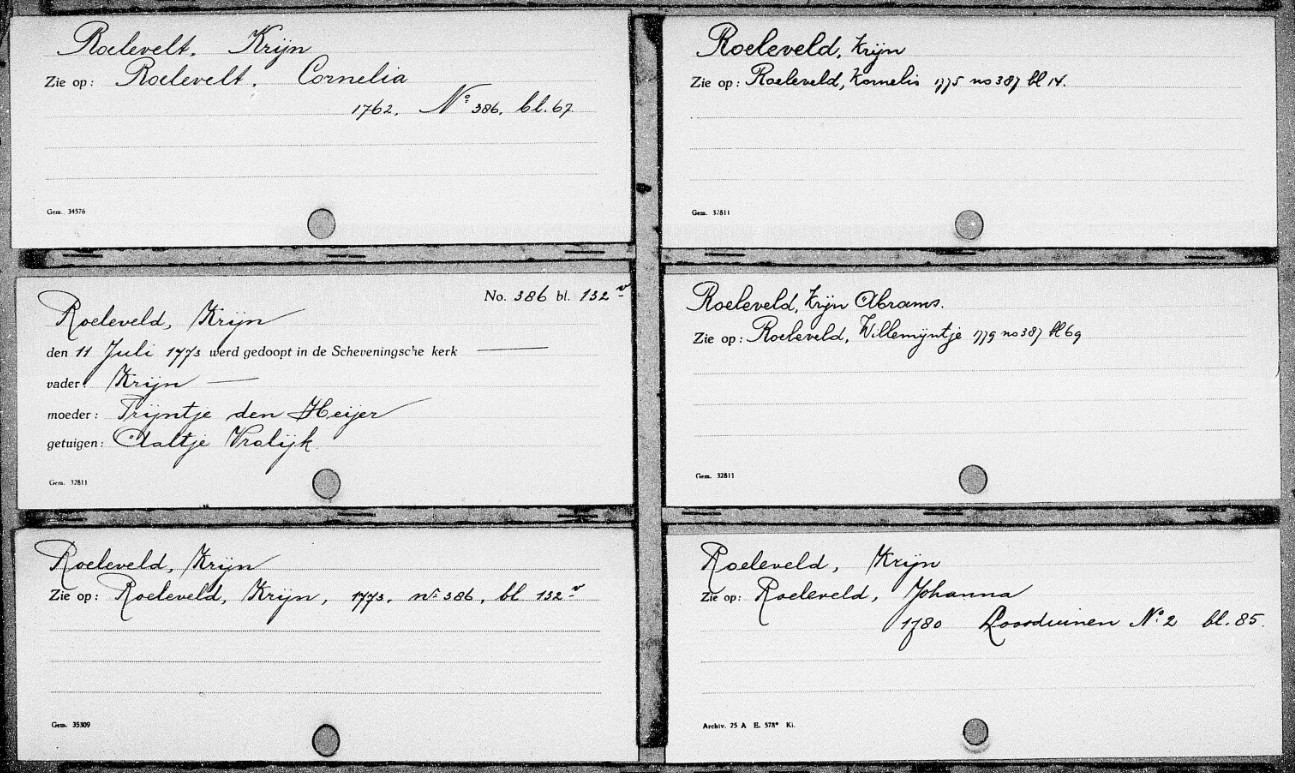 Roelevelt, Krijn
Zie op: Roelevelt, Cornelia
1762, No 386, bl. 67
Gem. 34576
No. 386 bl. 132 v
Roeleveld, Krijn
den 11 Juli 1773 werd gedoopt in de Scheveningsche kerk
vader: Krijn
moeder: Trijntje den Heijer
getuigen: Aaltje Vrolijk
Gem. 32811
Roeleveld, Krijn
Zie op: Roeleveld, Krijn, 1773, no 386, bl 132 v
Gem. 35309
Roeleveld, Krijn
Zie op: Roeleveld, Kornelis 1775 no 387 bl 14.
Gem. 32811
Roeleveld, Krijn Abrams.
Zie op: Roeleveld, Willemijntje 1779 no 387 bl 69
Gem. 32811
Roeleveld, Krijn
Zie op: Roeleveld, Johanna
1780 Loosduinen No 2 bl. 85.
Archiv. 25 A E. 578* Ki.